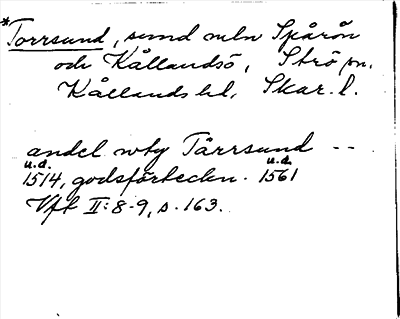 *Torrsund, sund mln Spårön
och Kållandsö, Strö sn.
Kållands hd, Skar. l.
andel wty Tårrsund --
u.d. u.d.
1514, godsförteckn. 1561
Vft II:8-9, s. 163.